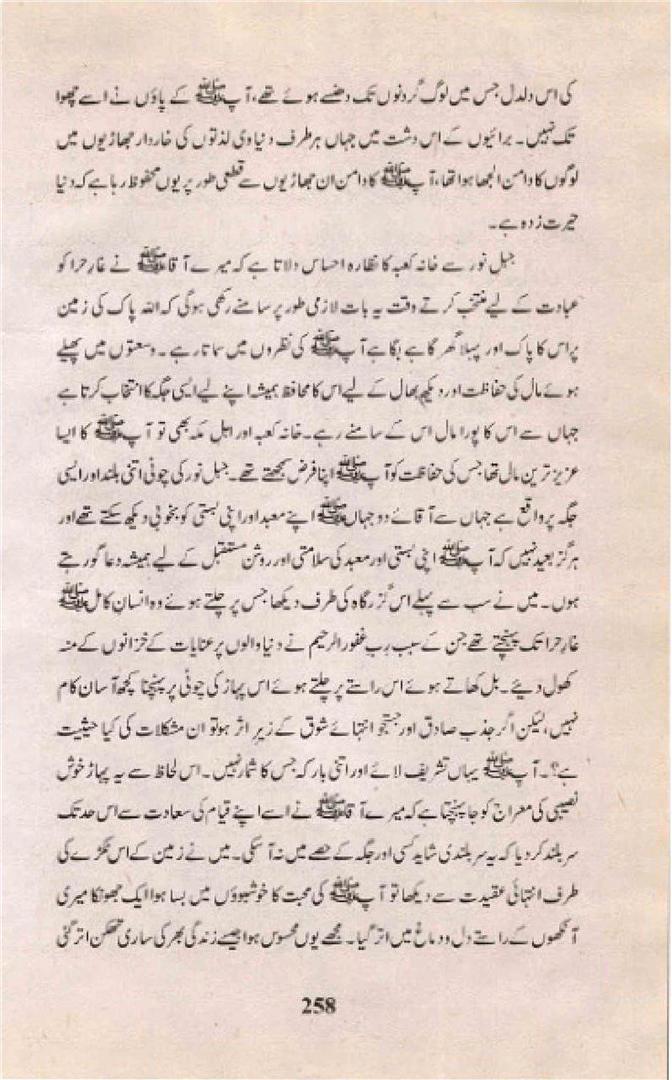 کی اس دلدل جس میں لوگ گردنوں تک دھنسے ہوئے تھے، آپ ﷺ کے پاؤں نے اسے چھوا
تک نہیں۔ برائیوں کے اس دشت میں جہاں ہر طرف دنیاوی لذتوں کی خاردار جھاڑیوں میں
لوگوں کا دامن الجھا ہوا تھا، آپ ﷺ کا دامن ان جھاڑیوں سے قطعی طور پر یوں محفوظ رہا ہے کہ دنیا
حیرت زدہ ہے۔
جبل نور سے خانہ کعبہ کا نظارہ احساس دلاتا ہے کہ میرے آقا ﷺ نے غارِ حرا کو
عبادت کے لیے منتخب کرتے وقت یہ بات لازمی طور پر سامنے رکھی ہوگی کہ اللہ پاک کی زمین
پر اس کا پاک اور پہلا گھر گاہے بگاہے آپ ﷺ کی نظروں میں سماتا رہے۔ وسعتوں میں پھیلے
ہوئے مال کی حفاظت اور دیکھ بھال کے لیے اس کا محافظ ہمیشہ اپنے لیے ایسی جگہ کا انتخاب کرتا ہے
جہاں سے اس کا پورا مال اس کے سامنے رہے۔ خانہ کعبہ اور اہلِ مکہ بھی تو آپ ﷺ کا ایسا
عزیز ترین مال تھا جس کی حفاظت کو آپ ﷺ اپنا فرض سمجھتے تھے۔ جبل نور کی چوٹی اتنی بلند اور ایسی
جگہ پر واقع ہے جہاں سے آقائے دو جہاں ﷺ اپنے معبد اور اپنی بستی کو بخوبی دیکھ سکتے تھے اور
ہرگز بعید نہیں کہ آپ ﷺ اپنی بستی اور معبد کی سلامتی اور روشن مستقبل کے لیے ہمیشہ دعا گو رہتے
ہوں۔ میں نے سب سے پہلے اس گزرگاہ کی طرف دیکھا جس پر چلتے ہوئے وہ انسانِ کامل ﷺ
غارِ حرا تک پہنچتے تھے جن کے سبب ربِ غفور الرحیم نے دنیا والوں پر عنایات کے خزانوں کے منہ
کھول دیئے۔ بل کھاتے ہوئے اس راستے پر چلتے ہوئے اس پہاڑ کی چوٹی پر پہنچنا کچھ آسان کام
نہیں، لیکن اگر جذبِ صادق اور جستجو انتہائے شوق کے زیرِ اثر ہو تو ان مشکلات کی کیا حیثیت
ہے؟۔ آپ ﷺ یہاں تشریف لائے اور اتنی بار کہ جس کا شمار نہیں۔ اس لحاظ سے یہ پہاڑ خوش
نصیبی کی معراج کو جا پہنچتا ہے کہ میرے آقا ﷺ نے اسے اپنے قیام کی سعادت سے اس حد تک
سربلند کر دیا کہ یہ سربلندی شاید کسی اور جگہ کے حصے میں نہ آ سکی۔ میں نے زمین کے اس ٹکڑے کی
طرف انتہائی عقیدت سے دیکھا تو آپ ﷺ کی محبت کا خوشبوؤں میں بسا ہوا ایک جھونکا میری
آنکھوں کے راستے دل و دماغ میں اتر گیا۔ مجھے یوں محسوس ہوا جیسے زندگی بھر کی ساری تھکن اتر گئی
258